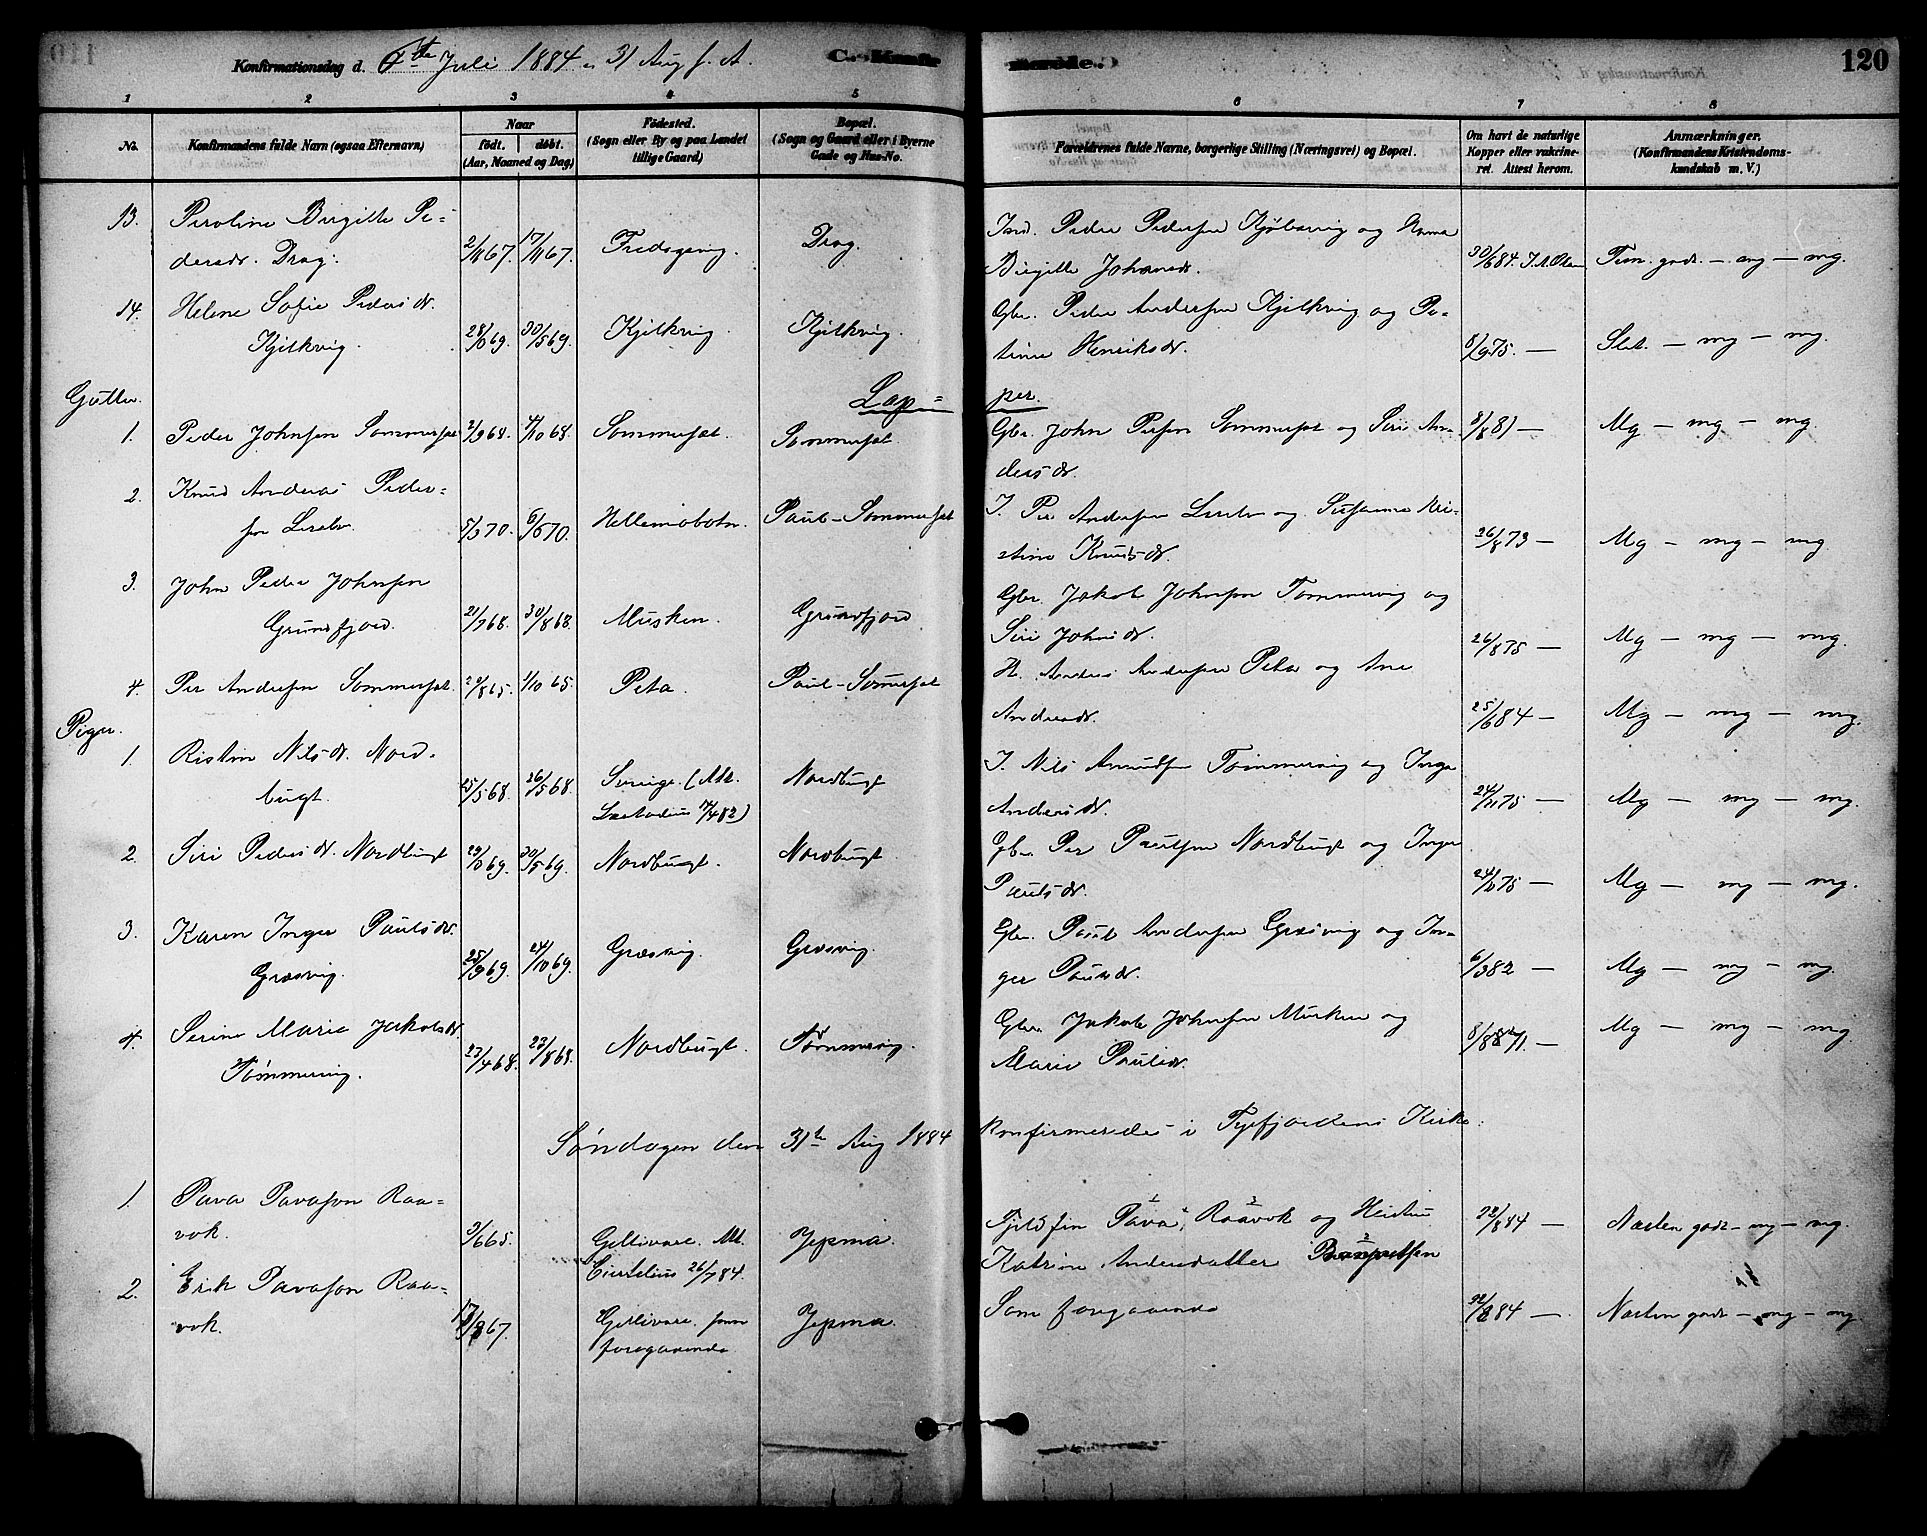 Konfirmationsdag d. 6te Juli 1884 31 Aug s. A.
120
1 2 3 4 5 6 7 8
No.
Konfirmandens fulde Navn (ogsaa Efternavn)
Naar
födt. döbt.
(Aar, Maaned og Dag)
Födested.
(Sogn eller By og paa Landet
tillige Gaard)
Bopæl.
(Sogn og Gaard eller i Byerne
Gade og Hus-No.
Forældrenes fulde Navne, borgerlige Stilling (Næringsvei) og Bopæl.
Om havt de naturlige
Kopper eller vakcine-
ret. Attest herom.
Anmærkninger.
(Konfirmandens Kristendoms-
kundskab m. V.)
13. Peroline Birgitte Pe-
dersdr. Drag. 2/11 67. 17/11 67. Drag. Ind. Peder Pedersen Kjøbsvig og Anna
Birgitte Johansdr. 30/6 84. Tem. godt. – mg – mg.
14. Helene Sofie Pedersdr.
Kjilkvig. 30/5 69. Kjilkvig. Kjilkvig. Gbr. Peder Andersen Kjilkvig og Pe-
tine Henriksdr. 8/9 75. — Slet. – mg – mg.
Gutter. Lap-
per.
1. Peder Johnsen Sommerset 2/9 68. 4/10 68. Sommerset. Sommerset. Gbr. John Persen Sommerset og Siri An-
dersdr. 8/8 81 — Mg – mg – mg.
2. Knud Andreas Peder-
sen 5/3 70. 6/6 70. Hellemobotn. Paul-Sommerset I. Per Andersen og Susanna Kri-
stine Knudsdr. 26/8 73 — Mg – mg – mg
3. John Peder Johnsen
Grundfjord. 21/7 68. 30/8 68. Musken. Grundfjord Gbr. Jakob Johnsen Tømmervig og
Siri Johnsdr. 26/8 75 — Mg – mg – mg.
4. Per Andersen Sommerset. 1/10 65. Peta. Paul-Sommerset Anders Andersen Peta og Ane
Andersdr. 25/6 84 — Mg – mg – mg.
Piger.
1. Ristin Nilsdr. Nord-
bugt. 25/5 68. 26/5 68. Sverige (Att.
Læstadius 14/4 82) Nordbugt I. Nils Amundsen Tømmervig og Inga
Andersdr. 24/11 75 — Mg – mg – mg.
2. Siri Pedersdr. Nordbugt 30/5 69. Nordbugt. Nordbugt. Gbr. Per Paulsen Nordbugt og Inger
Paulsdr. 24/11 75 — Mg – mg – mg.
3. Karen Inger Paulsdr.
Græsvig. 25/9 69. 24/10 69. Græsvig. Græsvig. Gbr. Paul Andersen Græsvig og In-
ger Paulsdr. 6/3 82 — Mg – mg – mg.
4. Serine Marie Jakobsdr.
Tømmervig. 23/4 68. 23/8 68. Nordbugt. Tømmervig. Gbr. Jakob Johnsen Musken og
Marie Paulsdr. Mg – mg – mg.
Søndagen den 31te Aug 1884 konfirmeredes i Tysfjordens Kirke.
1. Pava Pavason Raa-
vok. 3/6 65. Gellivare. Att.
26/7 84. Jepma. Fjeldfin Pava Raavok og
Katrine Andersdatter 22/8 84 — Næsten godt – mg – mg.
2. Erik Pavason Raa-
vok. Gellivare. som
foregaaende Jepma. Som foregaaende 22/8 84 — Næsten godt – mg – mg.